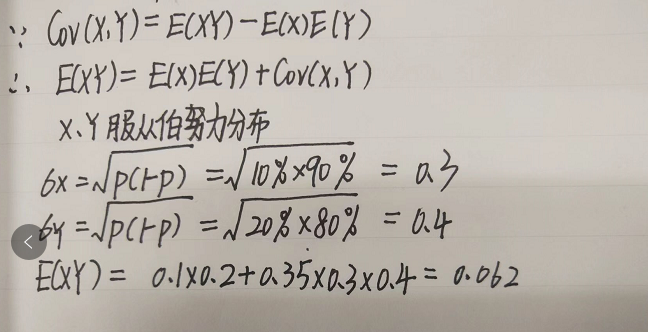 ∵ Cov(X,Y)=E(XY)-E(X)E(Y)
∴ E(XY)=E(X)E(Y)+Cov(X,Y)
X、Y服从伯努力分布
6x=√p(1-p) =√10%×90% = 0.3
6Y=√p(1-p) =√20%×80% = 0.4
E(XY)= 0.1×0.2+0.35×0.3×0.4=0.062